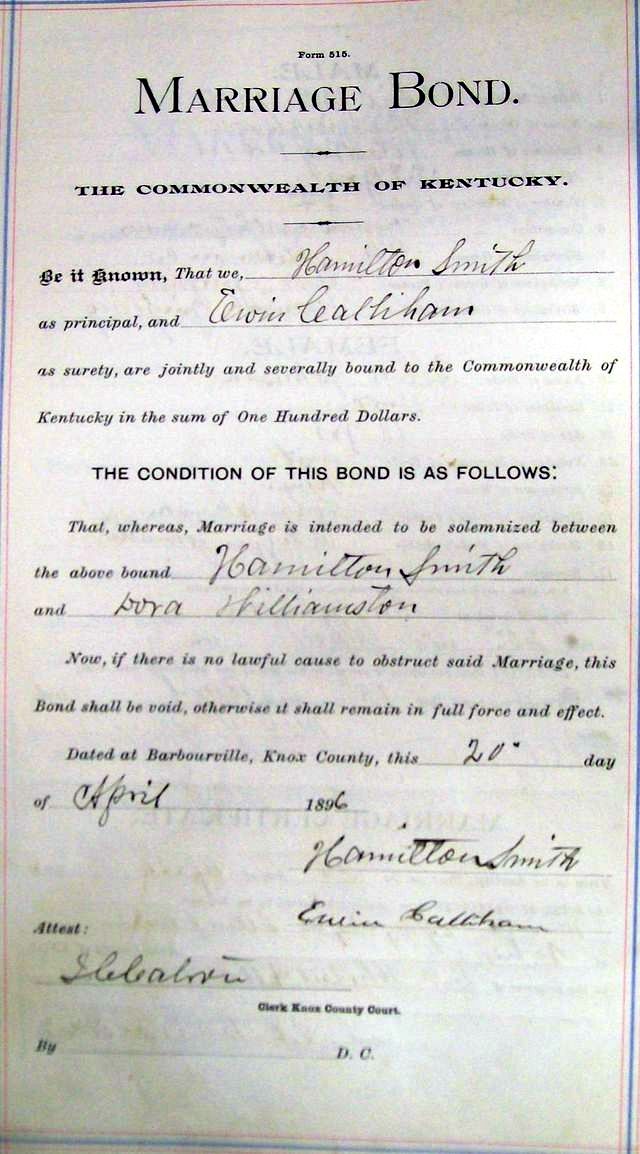 Form 515.
MARRIAGE BOND.
THE COMMONWEALTH OF KENTUCKY.
Be it Known, That we, Hamilton Smith
as principal, and Erwin Calliham
as surety, are jointly and severally bound to the Commonwealth of
Kentucky in the sum of One Hundred Dollars.
THE CONDITION OF THIS BOND IS AS FOLLOWS:
That, whereas, Marriage is intended to be solemnized between
the above bound Hamilton Smith
and Dora Williamston
Now, if there is no lawful cause to obstruct said Marriage, this
Bond shall be void, otherwise it shall remain in full force and effect.
Dated at Barbourville, Knox County, this 20" day
of April 1896
Hamilton Smith
Erwin Calliham
Attest:
Clerk Knox County Court.
By D. C.